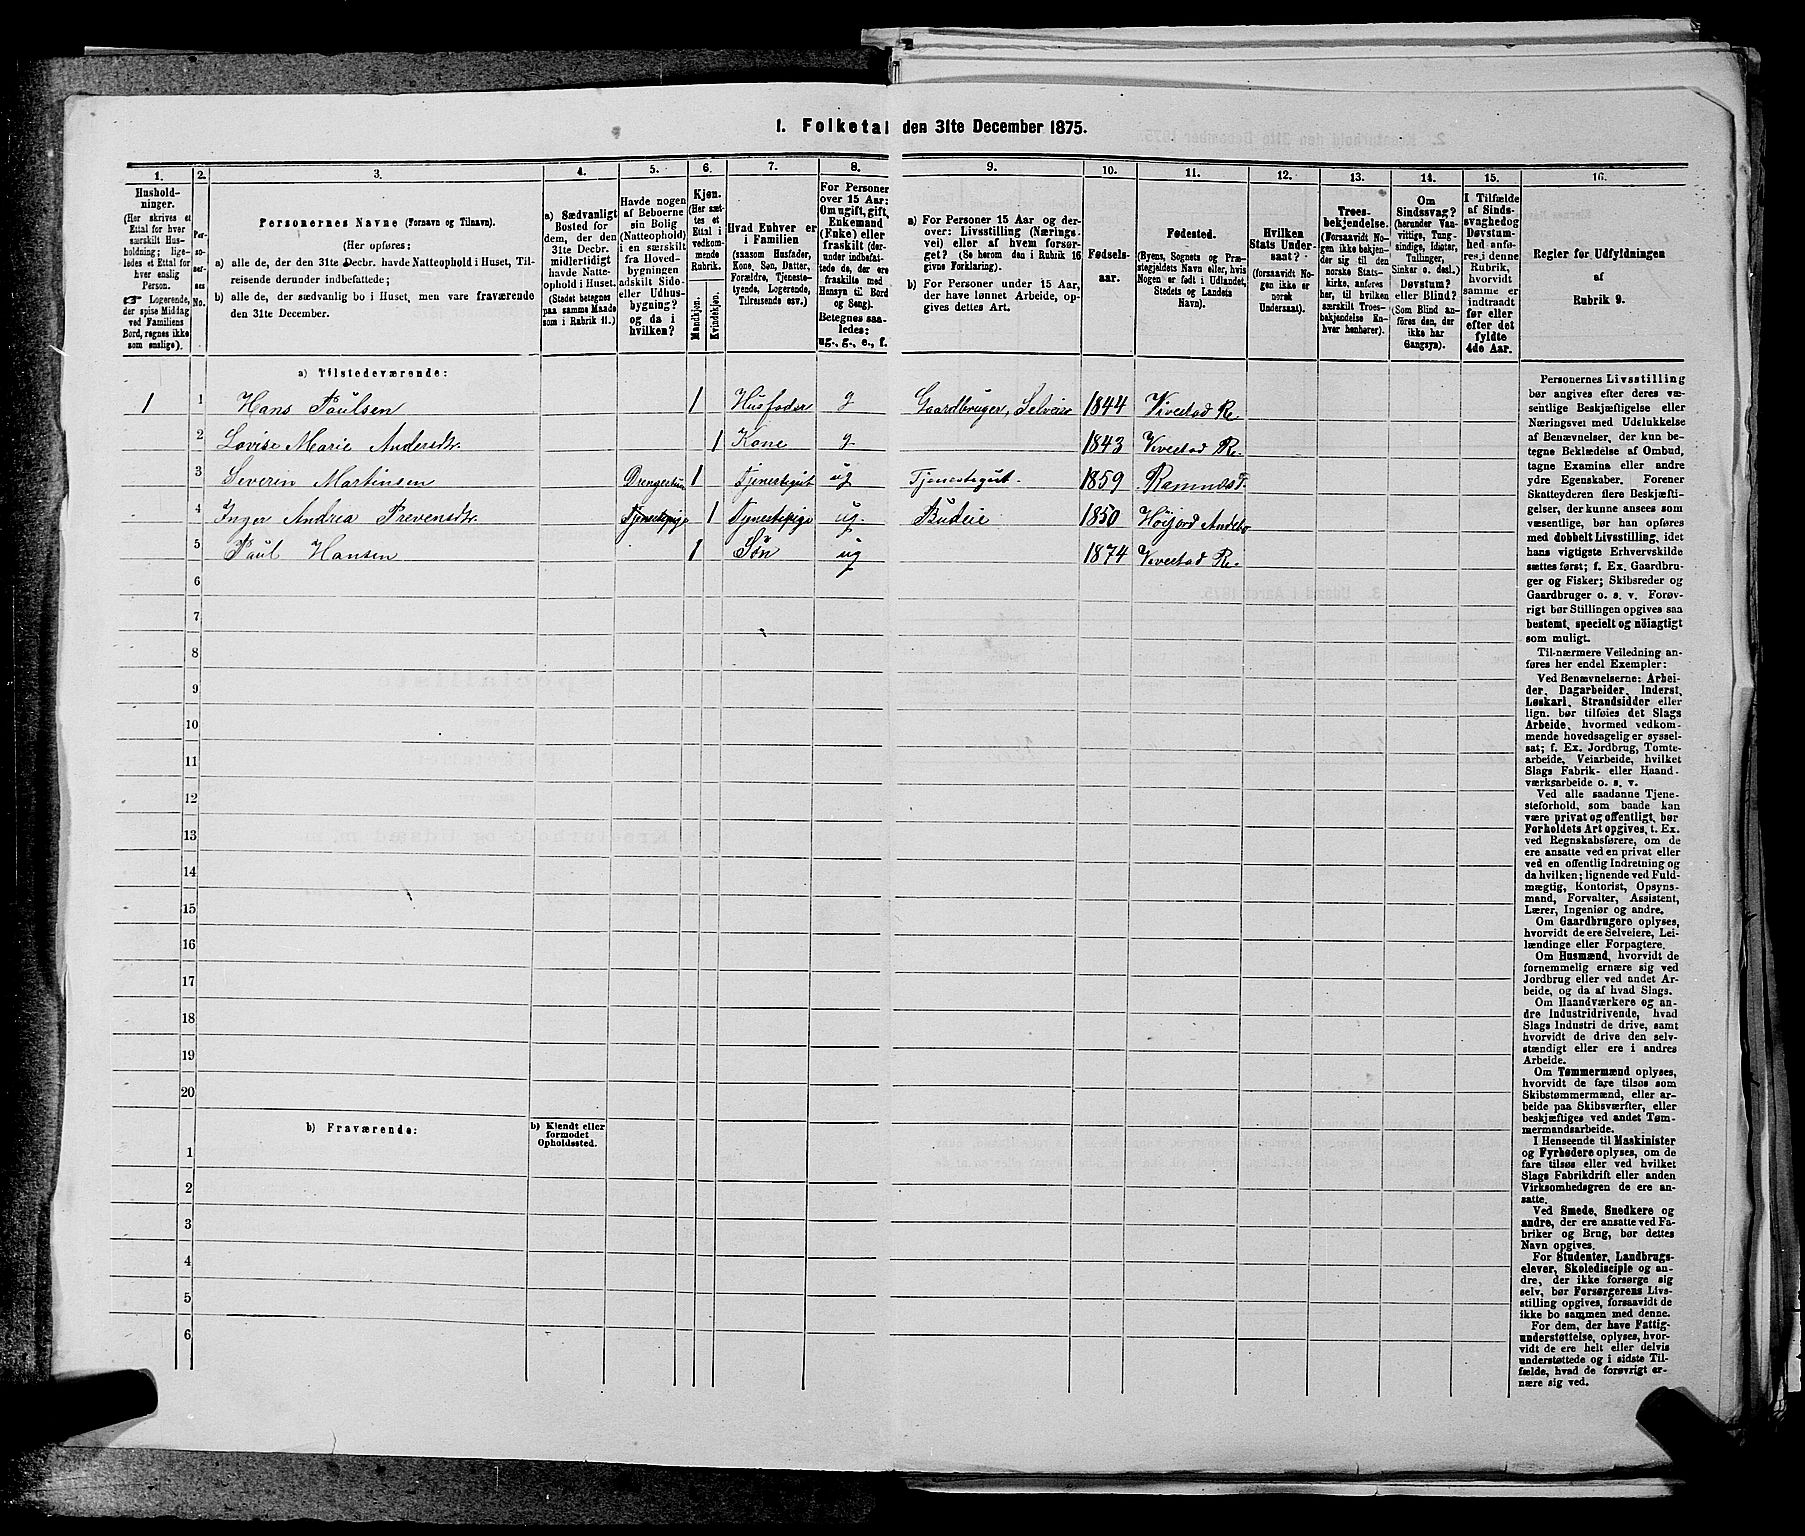 1. Folketal den 31te December 1875.
1. 2. 3. 4. 5. 6. 7. 8. 9. 10. 11. 12. 13. 14. 15. 16.
Hushold-
ninger.
(Her skrives et
Ettal for hver
særskilt Hus-
holdning; lige-
ledes et Ettal for
hver enslig
Person.
☞ Logerende,
der spise Middag
ved Familiens
Bord, regnes ikke
som enslige).
Per-
so-
ner-
nes
No.
Personernes Navne (Fornavn og Tilnavn).
(Her opføres:
a) alle de, der den 31te Decbr. havde Natteophold i Huset, Til-
reisende derunder indbefattede;
b) alle de, der sædvanlig bo i Huset, men vare fraværende
den 31te December.
a) Sædvanligt
Bosted for
dem, der den
31te Decbr.
midlertidigt
havde Natte-
ophold i Huset.
(Stedet betegnes
paa samme Maade
som i Rubrik 11.)
Havde nogen
af Beboerne
sin Bolig
(Natteophold)
i en særskilt
fra Hoved-
bygningen
adskilt Side-
eller Udhus-
bygning?
og da i
hvilken?
Kjøn.
(Her sæt-
tes et
Ettal i
vedkom-
mende
Rubrik.
Mandkjøn.
Kvindekjøn.
Hvad Enhver er
i Familien
(saasom Husfader,
Kone, Søn, Datter,
Forældre, Tjeneste-
tyende, Logerende,
Tilreisende osv.)
For Personer
over 15 Aar:
Om ugift, gift,
Enkemand
(Enke) eller
fraskilt (der-
under indbefat-
tede de, der ere
fraskilte med
Hensyn til Bord
og Seng).
Betegnes saa-
ledes:
ug., g., e., f.
a) For Personer 15 Aar og der-
over: Livsstilling (Nærings-
vei) eller af hvem forsør-
get? (Se herom den i Rubrik 16
givne Forklaring).
b) For Personer under 15 Aar,
der have lønnet Arbeide, op-
gives dettes Art.
Fødsels-
aar.
Fødested.
(Byens, Sognets og Præ-
stegjeldets Navn eller, hvis
Nogen er født i Udlandet,
Stedets og Landets
Navn).
Hvilken
Stats Under-
saat?
(forsaavidt No-
gen ikke er
norsk
Undersaat).
Troes-
bekjendelse.
(Forsaavidt No-
gen ikke bekjen-
der sig til den
norske Stats-
kirke, anføres
her, til hvilken
særskilt Troes-
bekjendelse En-
hver henhører).
Om
Sindssvag?
(herunder Van-
vittige, Tung-
sindige, Idioter,
Tullinger,
Sinker o. desl.)
Døvstum?
eller Blind?
(Som Blind an-
føres den, der
ikke har
Gangsyn).
I Tilfælde
af Sinds-
svaghed og
Døvstum-
hed anfø-
res i denne
Rubrik,
hvorvidt
samme er
indtraadt
før eller
efter det
fyldte
4de Aar.
Regler for Udfyldningen
af
Rubrik 9.
a) Tilstedeværende:
1 1 Hans Paulsen 1 Husfader g Gaardbruger, Selveier 1844 Vivestad Re.
2 Lovise Marie Andersdtr. 1 Kone g. 1843 Vivestad Re.
3 Severin Martinsen Drengestuen 1 Tjenestegut ug Tjenestegut. 1859 Ramnæs
4 Inger Andrea Prevensdtr. Tjenestepige 1 Tjenestepige ug. Budeie 1850 Høijord Andebo
5 Paul Hansen 1 Søn ug 1874 Vivestad Re.
6
7
8
9
10
11
12
13
14
15
16
17
18
19
20
b) Fraværende:
b) Kjendt eller
formodet
Opholdssted.
1
2
3
4
5
6
Personernes Livsstilling
bør angives efter deres væ-
sentlige Beskjæftigelse eller
Næringsvei med Udelukkelse
af Benævnelser, der kun be-
tegne Beklædelse af Ombud,
tagne Examina eller andre
ydre Egenskaber. Forener
Skatteyderen flere Beskjæfti-
gelser, der kunne ansees som
væsentlige, bør han opføres
med dobbelt Livsstilling, idet
hans vigtigste Erhvervskilde
sættes først; f. Ex. Gaardbru-
ger og Fisker; Skibsreder og
Gaardbruger o. s. v. Forøv-
rigt bør Stillingen opgives saa
bestemt, specielt og nøiagtigt
som muligt.
Til nærmere Veiledning an-
føres her endel Exempler:
Ved Benævnelserne: Arbei-
der, Dagarbeider, Inderst,
Løskarl, Strandsidder eller
lign. bør tilføies det Slags
Arbeide, hvormed vedkom-
mende hovedsagelig er syssel-
sat; f. Ex. Jordbrug, Tomte-
arbeide, Veiarbeide, hvilket
Slags Fabrik- eller Haand-
værksarbeide o. s. v.
Ved alle saadanne Tjene-
steforhold, som baade kan
være privat og offentligt, bør
Forholdets Art opgives, t. Ex.
ved Regnskabsførere, om de
ere ansatte ved en privat eller
ved en offentlig Indretning og
da hvilken; lignende ved Fuld-
mægtig, Kontorist, Opsyns-
mand, Forvalter, Assistent,
Lærer, Ingeniør og andre.
Om Gaardbrugere oplyses,
hvorvidt de ere Selveiere, Lei-
lændinge eller Forpagtere.
Om Husmænd, hvorvidt de
fornemmelig ernære sig ved
Jordbrug eller ved andet Ar-
beide, og da af hvad Slags.
Om Haandværkere og an-
dre Industridrivende, hvad
Slags Industri de drive, samt
hvorvidt de drive den selv-
stændigt eller ere i andres
Arbeide.
Om Tømmermænd oplyses,
hvorvidt de fare tilsøs som
Skibstømmermænd, eller ar-
beide paa Skibsværfter, eller
beskjæftiges ved andet Tøm-
mermandsarbeide.
I Henseende til Maskinister
og Fyrbødere oplyses, om de
fare tilsøs eller ved hvilket
Slags Fabrikdrift eller anden
Virksomhedsgren de ere an-
satte.
Ved Smede, Snedkere og
andre, der ere ansatte ved Fa-
briker og Brug, bør dettes
Navn opgives.
For Studenter, Landbrugs-
elever, Skoledisciple og an-
dre, der ikke forsørge sig
selv, bør Forsørgerens Livs-
stilling opgives, forsaavidt de
ikke bo sammen med denne.
For dem, der have Fattig-
understøttelse, oplyses, hvor-
vidt de ere helt eller delvis
understøttede og i sidste Til-
fælde, hvad de forøvrigt er-
nære sig ved.